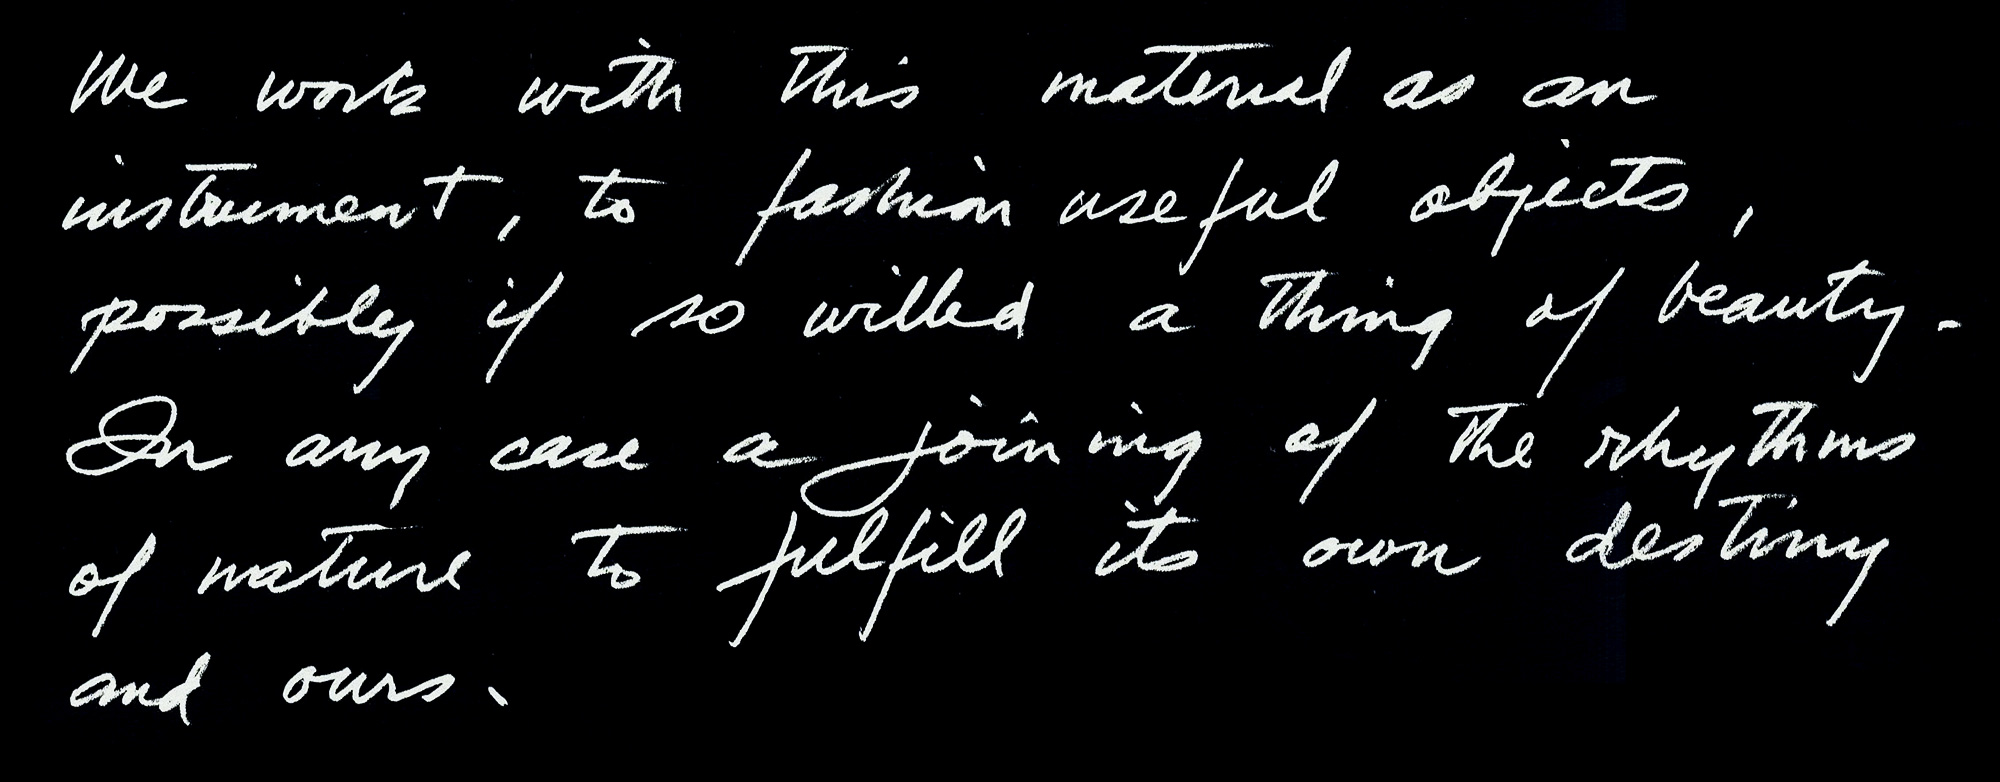 We work with this material as an
instrument, to fashion useful objects,
possibly if so willed a thing of beauty.
In any case a joining of the rhythms
of nature to fulfill its own destiny
and ours.